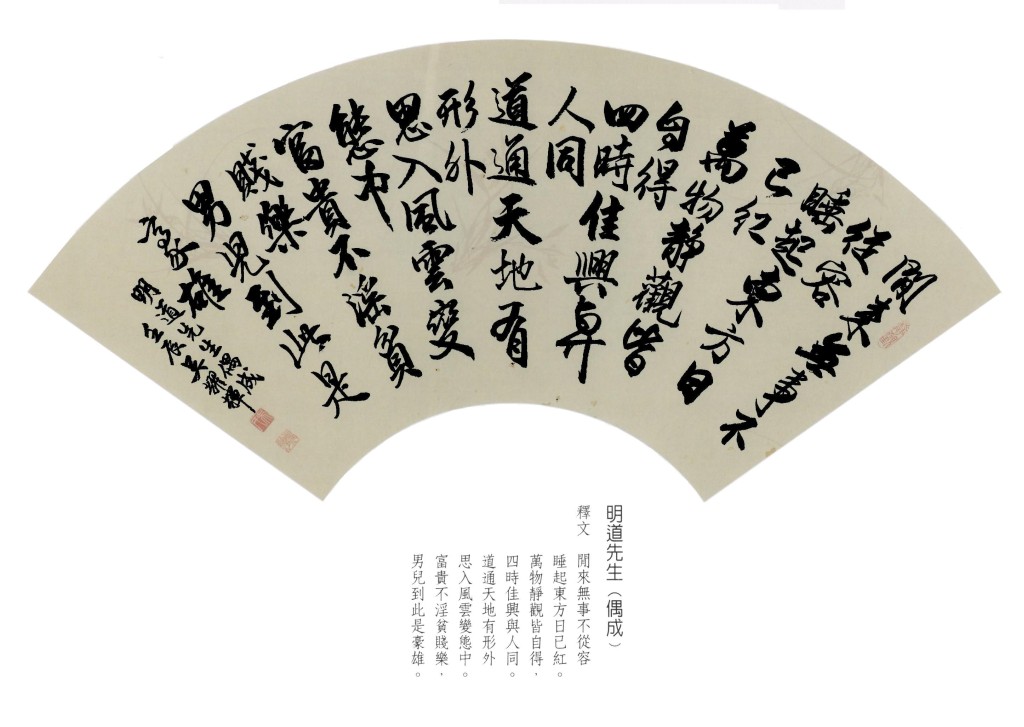 閒来無事不
從容
睡起東方日
已紅
萬物靜觀皆
自得
四時佳興與
人同
道通天地有
形外
思入風雲變
態中
富貴不淫貧
賤樂
男兒到此是
豪雄
明道先生偶成
壬辰吴耀輝
明道先生（偶成）
釋文 閒來無事不從容
睡起東方日已紅。
萬物靜觀皆自得，
四時佳興與人同。
道通天地有形外
思入風雲變態中。
富貴不淫貧賤樂，
男兒到此是豪雄。